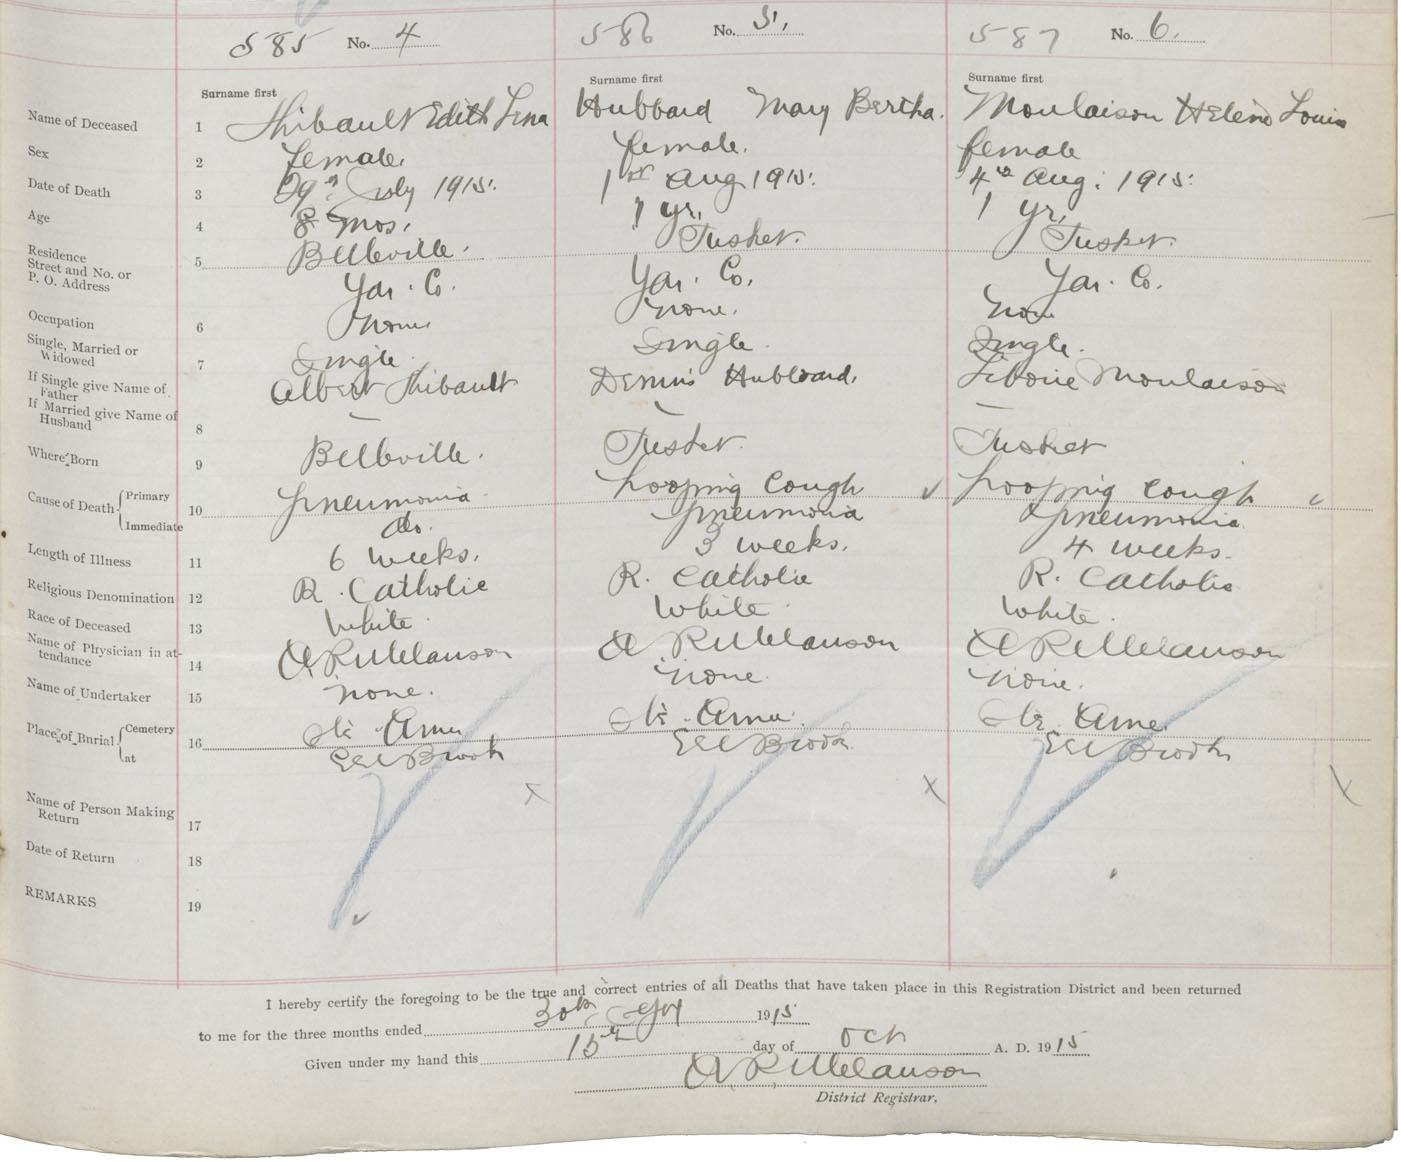 585 No. 4
586 No. 5.
587 No. 6.
Surname first
Surname first
Surname first
Name of Deceased 1 Thibault Edith Lena
Hubbard Mary Bertha.
Moulaison Helene Louis
Sex 2 female.
female.
female
Date of Death 3 29th July 1915.
1st Aug 1915.
4th Aug. 1915.
Age 4 8 mos.
1 yr.
1 yr.
Residence
Street and No. or
P. O. Address
5 Belleville.
Tusket.
Tusket.
Yar. Co.
Yar. Co.
Yar. Co.
Occupation 6 None
none.
None
Single, Married or
Widowed
7 Single.
Single.
Single.
If Single give Name of
Father
Albert Thibault
Dennis Hubbard.
Moulaison
If Married give Name of
Husband
8 –
–
–
Where Born 9 Belleville.
Tusket
Tusket
Cause of Death Primary 10 pneumonia
hooping Cough
hooping cough
Immediate do.
pneumonia
pneumonia
Length of Illness 11 6 weeks.
3 weeks.
4 weeks.
Religious Denomination 12 R. Catholic
R. Catholic
R. Catholic
Race of Deceased 13 White.
White.
White.
Name of Physician in at-
tendance
14 A R Melanson
A R Melanson
A R Melanson
Name of Undertaker 15 none.
none.
none.
Place of Burial Cemetery 16 Ste. Anne
Ste. Anne.
Ste. Anne.
at Eel Brook
Eel Brook
Eel Brook
X
X
X
Name of Person Making
Return
17
Date of Return 18
REMARKS 19
I hereby certify the foregoing to be the true and correct entries of all Deaths that have taken place in this Registration District and been returned
to me for the three months ended 30th Sept 1915
Given under my hand this 15th day of Oct A. D. 1915
A. R. Melanson
District Registrar.